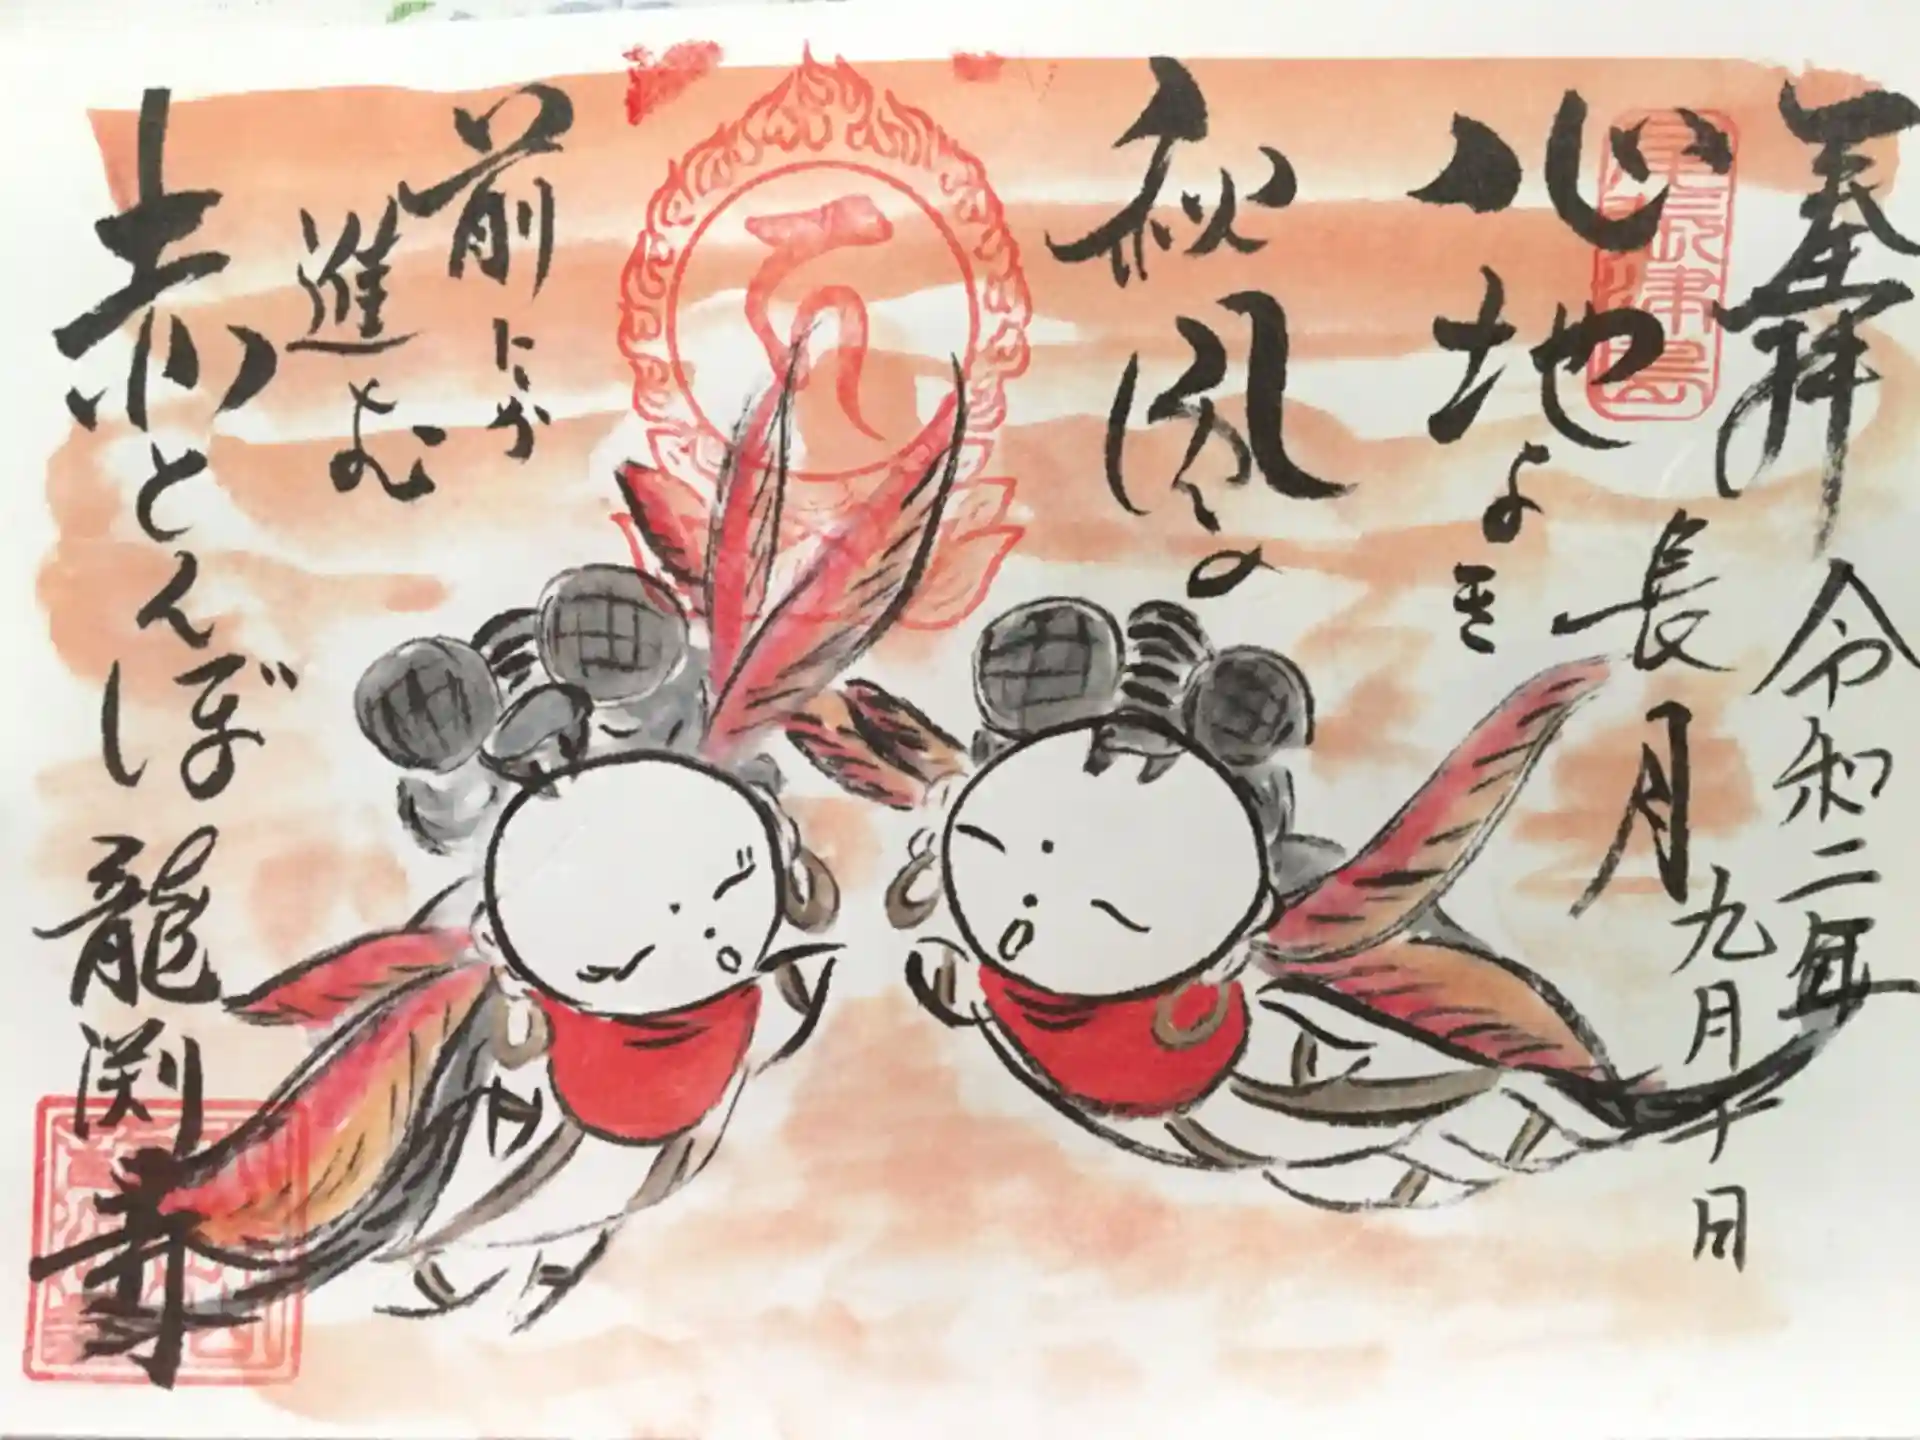 奉拝
令和二年
九月十日
長月
心地よき
秋風の
前にが
進よむ
赤とんぼ
龍渕寺